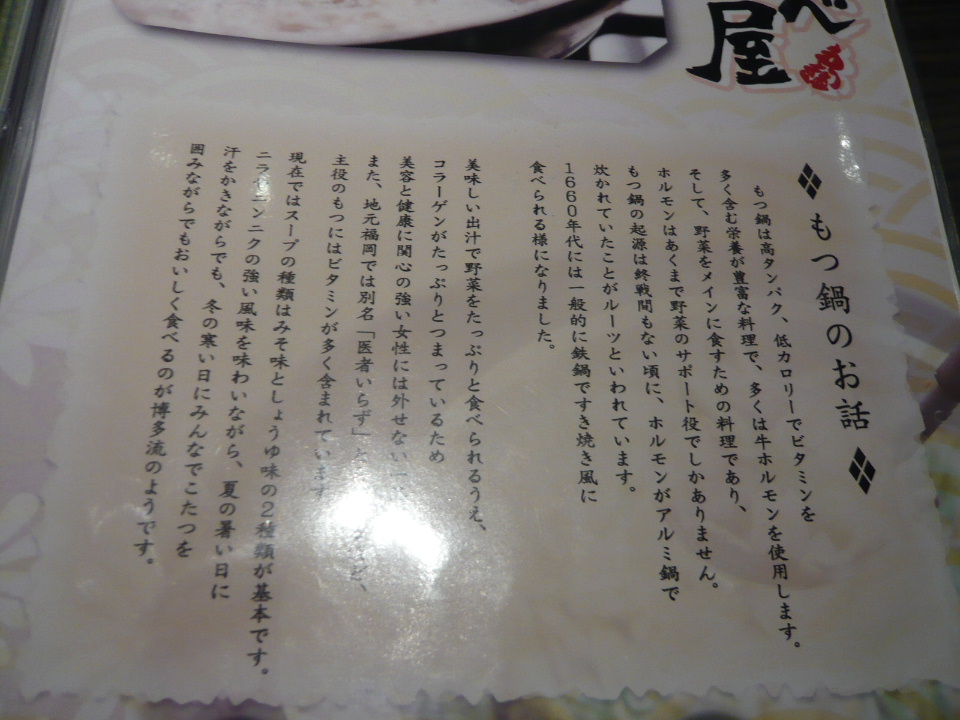 べ
屋
もつ鍋のお話
もつ鍋は高タンパク、低カロリーでビタミンを
多く含む栄養が豊富な料理で、多くは牛ホルモンを使用します。
そして、野菜をメインに食すための料理であり、
ホルモンはあくまで野菜のサポート役でしかありません。
もつ鍋の起源は終戦間もない頃に、ホルモンがアルミ鍋で
炊かれていたことがルーツといわれています。
1660年代には一般的に鉄鍋ですき焼き風に
食べられる様になりました。
美味しい出汁で野菜をたっぷりと食べられるうえ、
コラーゲンがたっぷりとつまっているため
美容と健康に関心の強い女性には外せない
また、地元福岡では別名「医者いらず」と
主役のもつにはビタミンが多く含まれています
現在ではスープの種類はみそ味としょうゆ味の2種類が基本です。
ニラやニンニクの強い風味を味わいながら、夏の暑い日に
汗をかきながらでも、冬の寒い日にみんなでこたつを
囲みながらでもおいしく食べるのが博多流のようです。